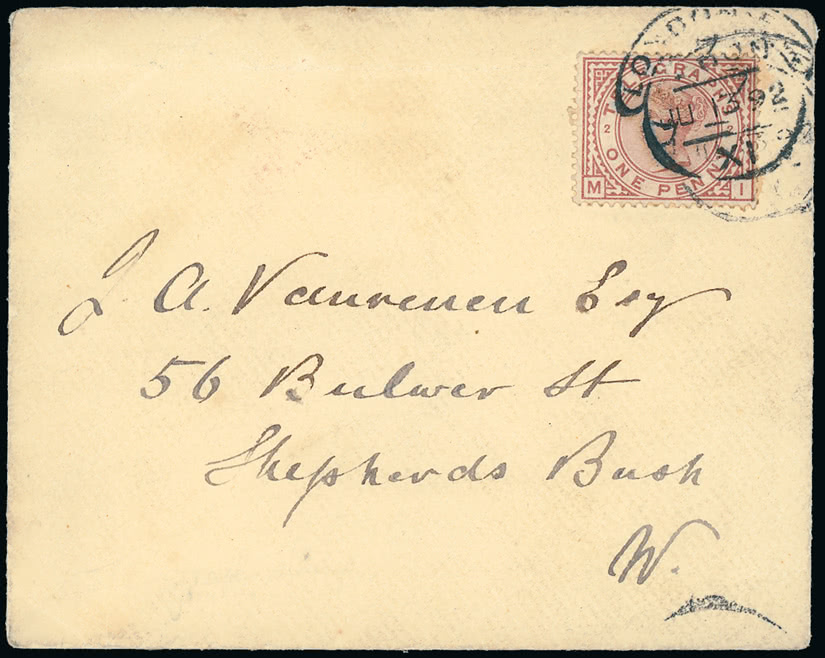 LONDON
TELEGRAPHS
2 2
ONE PENNY
M I
J A. Vanrenen Esq
56 Bulwer St
Shepherds Bush
W.